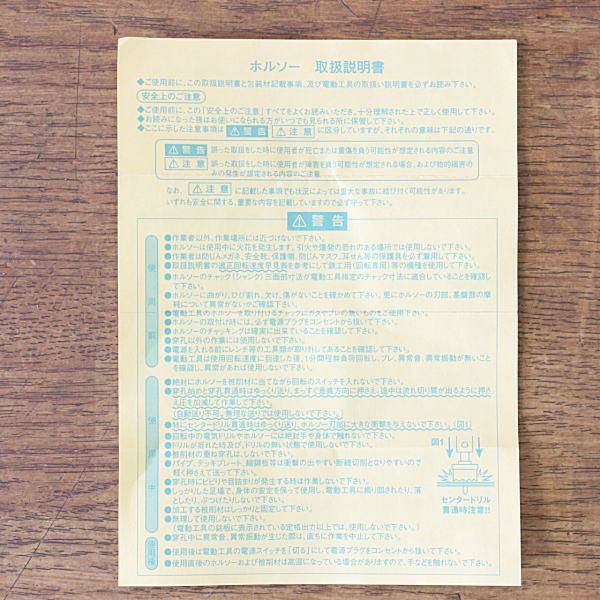 ホルソー 取扱説明書
●ご使用前に、この取扱説明書と包装材記載事項、及び電動工具の取扱い説明書を必ずお読み下さい。
安全上のご注意
●ご使用前に、この「安全上のご注意」すべてをよくお読みいただき、十分理解された上で正しく使用して下さい。
●お読みになった後はお使いになられる方がいつでも見られる所に保管して下さい。
●ここに示した注意事項は 警告 注意 に区分していますが、それぞれの意味は下記の通りです。
警告 誤った取扱をした時に使用者が死亡または重傷を負う可能性が想定される内容のご注意
注意 誤った取扱をした時に使用者が障害を負う可能性が想定される場合、および物的損害のみの発生が想定される内容のご注意
なお、 注意 に記載した事項でも状況によっては重大な事故に結び付く可能性があります。
いずれも安全に関する、重要な内容を記載していますので必ず守って下さい。
警告
使用前
●作業者以外、作業場所には近づけないで下さい。
●ホルソーは使用中に火花を発生します、引火や爆発の恐れのある場所では使用しないで下さい。
●作業者は防じんメガネ、安全靴、保護帽、防じんマスク、耳せん等の保護具を必ず着用して下さい。
●取扱説明書の適正回転速度早見表を参考にして鉄工用(回転専用)等の機種を使用して下さい。
●ホルソーのチャック(シャンク)三面部寸法が電動工具指定のチャック寸法に適合していることを確認して下さい。
●ホルソーに曲がり、ひび割れ、欠け、傷がないことを確かめて下さい。更にホルソーの刃部、基盤部の摩耗について異常がないかご確認下さい。
●電動工具のホルソーを取り付けるチャックにガタやブレの無いものをご使用下さい。
●ホルソーの取付け時には、必ず電源プラグをコンセントから抜いて下さい。
●ホルソーのチャッキングは確実に出来ていることを確認して下さい。
●穿孔以外の作業には使用しないで下さい。
●電源を入れる前にレンチ等の工具類が取り外してあることを確認して下さい。
●電動工具は使用回転速度に到達した後、1分間程無負荷回転し、ブレ、異常音、異常振動が無いことを確認し、異常があれば使用しないで下さい。
使用中
●絶対にホルソーを被削材に当てながら回転のスイッチを入れないで下さい。
●穿孔始めと穿孔貫通時はゆっくり送り、まっすぐ垂直方向に押さえ、途中は流れ切り屑が出るように押さえ圧を加減して作業して下さい。
(自動送り不可。無理な送りでは使用しないで下さい。)
●特にセンタードリル貫通時はゆっくり送り、ホルソー刃部に大きな衝撃を与えないで下さい。(図1)
●回転中の電気ドリルやホルソーには絶対手や身体で触れないで下さい。
●ドリルが折れた時及び、ドリルの無い状態で使用しないで下さい。
●被削材の重ね穿孔は、しないで下さい。
●パイプ、デッキプレート、縞鋼板等は衝撃の出やすい断続切削となりやすいので軽く押さえて送って下さい。
●穿孔時にビビりや目詰まりが発生する時は作業しないで下さい。
●しっかりした足場で、身体の安定を保って使用し、電動工具に振り回されたり、落としたり、ぶつけたりしないで下さい。
●加工する被削材はしっかりと固定して下さい。
●無理して使用しないで下さい。
(電動工具の銘板に表示されている定格出力以上では、使用しないで下さい。)
●穿孔中に異常音、異常振動が生じた際は、直ちに作業を中止して下さい。
図1
センタードリル
貫通時注意!!
使用後
●使用後は電動工具の電源スイッチを「切る」にして電源プラグをコンセントから抜いて下さい。
●使用直後のホルソーおよび被削材は高温になっている場合がありますので、手などを触れないで下さい。